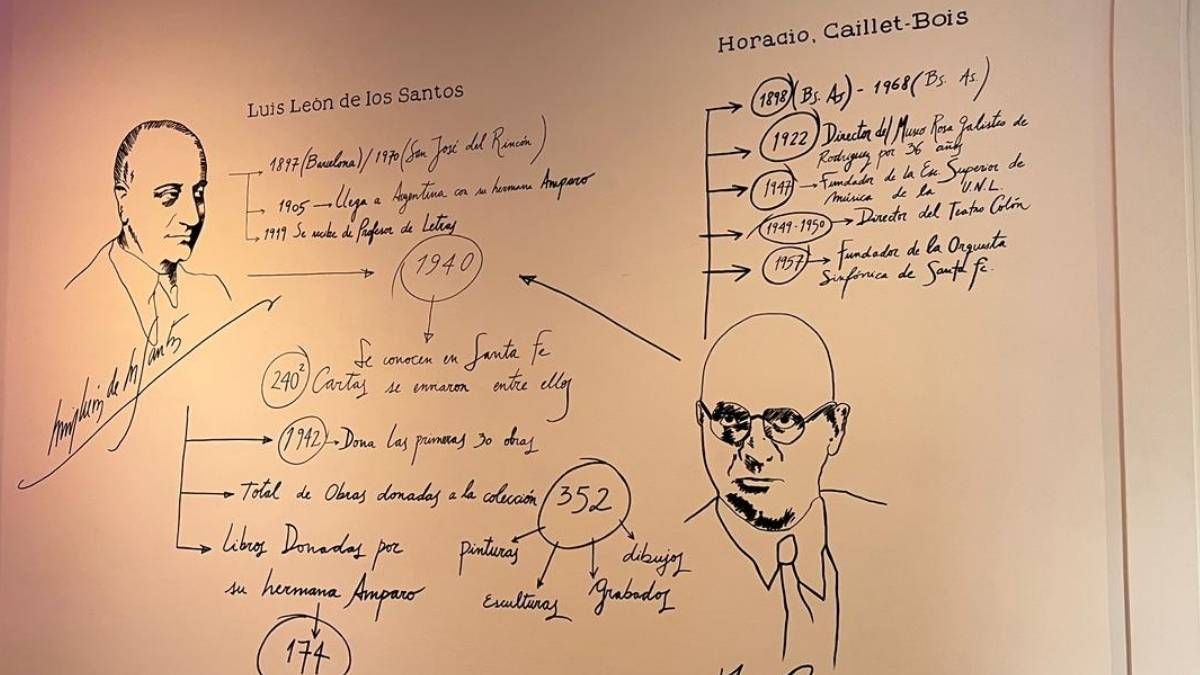 Luis León de los Santos
1897 (Barcelona) / 1970 (San José del Rincón)
1905 → Llega a Argentina con su hermana Amparo
1919 Se recibe de Profesor de Letras
1940
Se conocen en Santa Fe
240² Cartas se enviaron entre ellos
1942 → Dona las primeras 30 obras
Total de Obras donadas a la colección 352
pinturas
Esculturas
Grabados
dibujos
Libros Donadas por
su hermana Amparo
174
Horacio, Caillet-Bois
1898 (Bs. As) - 1968 (Bs. As.)
1922 Director del Museo Rosa Galisteo de
Rodríguez por 36 años
1947 → Fundador de la Esc. Superior de
música de la U.N.L.
1949-1950 → Director del Teatro Colón
1957 → Fundador de la Orquesta
Sinfónica de Santa Fe.